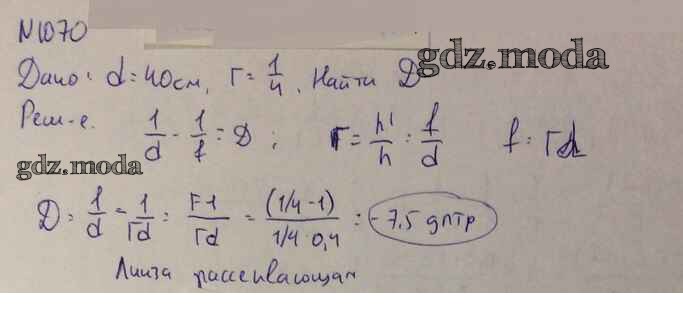 N1070
gdz.moda
Дано: d = 40см, Г = 1/4. Найти D
Реш-е. 1/d - 1/f = D; Г = h'/h = f/d f = Гd
gdz.moda
D = 1/d - 1/Гd = Г-1/Гd = (1/4-1)/1/4·0,4 = -7.5 дптр
Линза рассеивающая